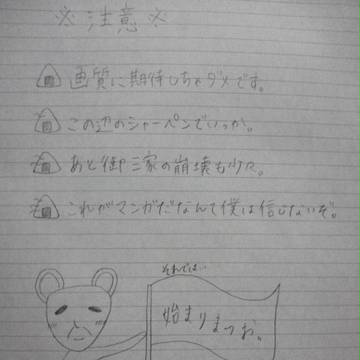 ※注意※
画質に期待しちゃダメです。
この辺のシャーペンでいっか。
あと御三家の崩壊も少々。
これがマンガだなんて僕は信じないぞ。
それでは…
始まりまつお。